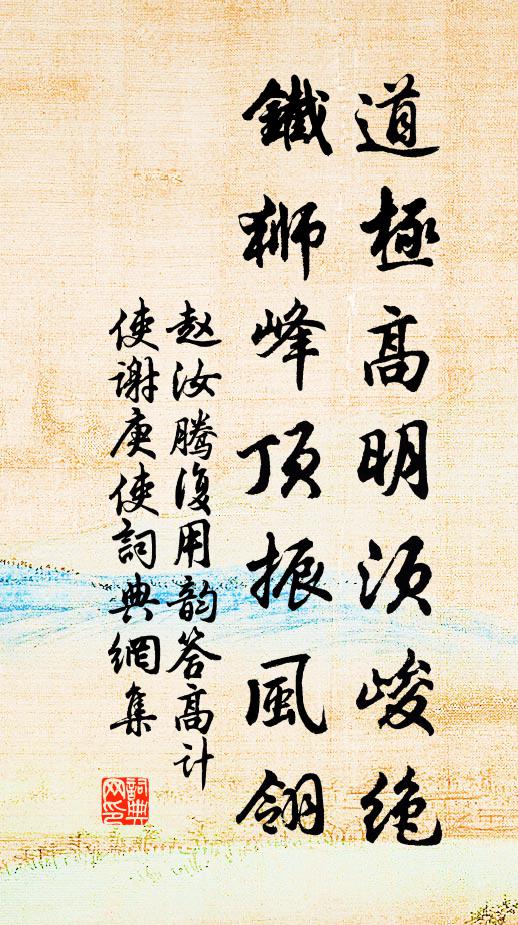 道極高明須峻绝
鐵獅峰頂振風翎
赵汝腾復用韵答高计
使谢庾使詞典網集
詞典网印